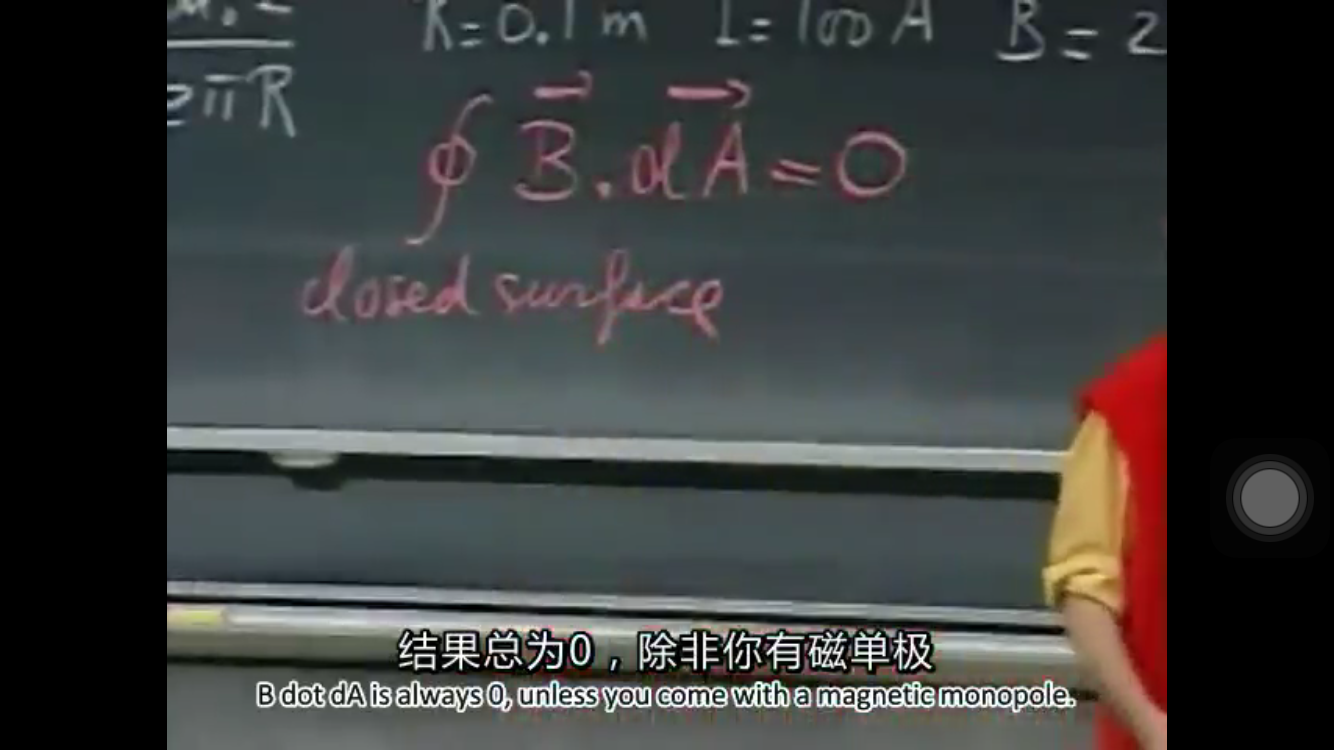 R=0.1m I=100A B=2
2πR
∮ B⃗ . dA⃗ = 0
closed surface
结果总为0，除非你有磁单极
B dot dA is always 0, unless you come with a magnetic monopole.